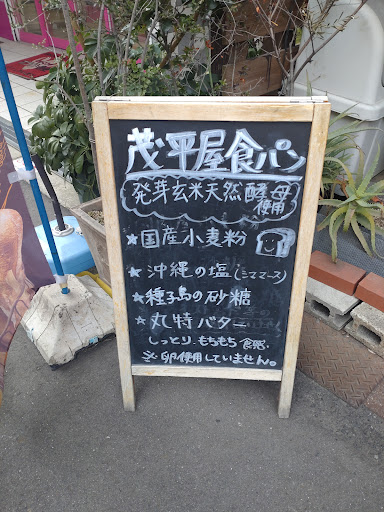 茂平屋食パン
発芽玄米天然酵母
使用
★国産小麦粉
★沖縄の塩(シママース)
★種子島の砂糖
★丸特バター
しっとり、もちもち食感、
※卵使用していません。